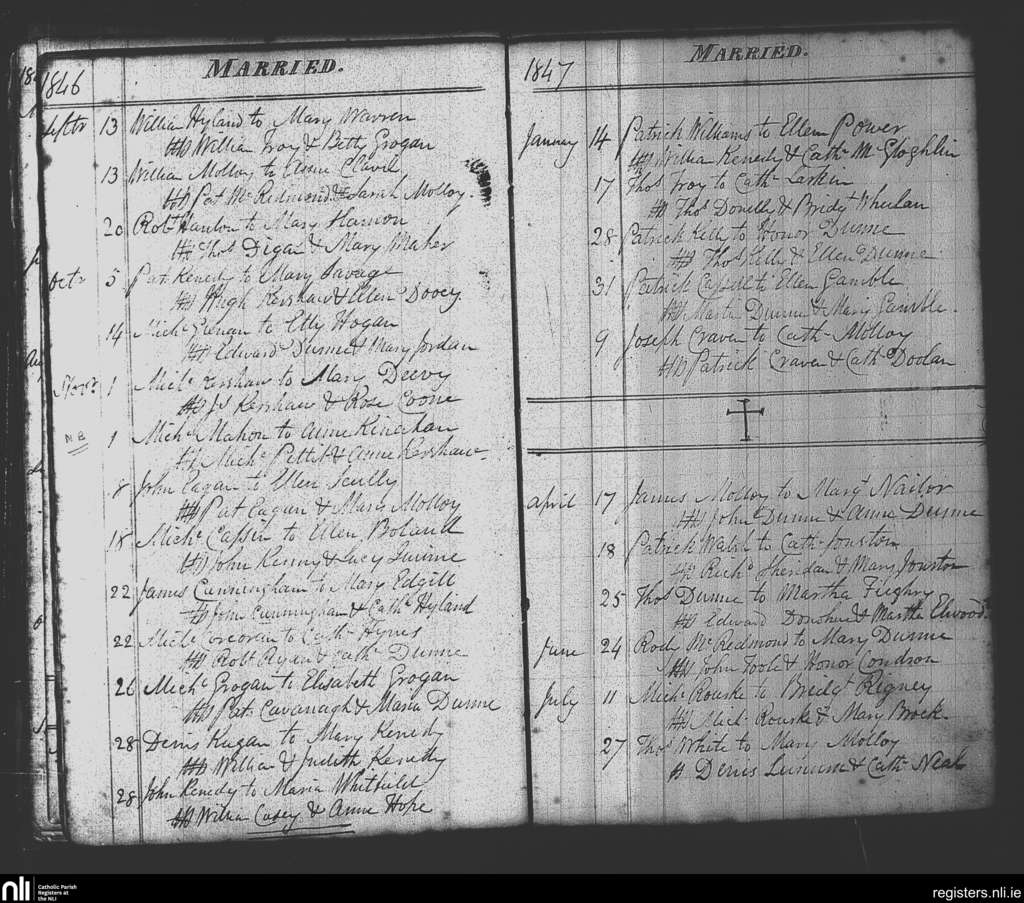 1846
MARRIED.
Septr 13 William Hyland to Mary Warren
William Troy & Betty Grogan
13 William Molloy to Anne Clavil
Pat McRedmond & Sarah Molloy.
20 Robt Hanlon to Mary Hanlon
Thos Degan & Mary Maher
Octr 5 Pat Kenedy to Mary Savage
Hugh Kershaw & Ellen Dooey
14 Michl to Etty Hogan
Edward Dunne & Mary Jordan
Novr 1 Michl Kershaw to Mary Deevy
Js Kershaw & Rose Coone
N B 1 Michl Mahon to Anne Kinahan
Michl Pettit & Anne Kershaw
8 John Eagan to Ellen Scully
Pat Eagan & Mary Molloy
18 Michl Cassin to Ellen Boland
John Kenny & Lucy Dunne
22 James Cunningham to Mary Edgill
John Cunningham & Cathe Hyland
22 Michl Corcoran to Cathe Hynes
Robt Ryan & Cath Dunne
26 Michl Grogan to Elisabeth Grogan
Pat Cavanagh & Maria Dunne
28 Denis Kagan to Mary Kenedy
William & Judith Kenedy
28 John Kenedy to Maria Whitfield
William Casey & Anne Hope
1847
MARRIED.
January 14 Patrick Williams to Ellen Power
William Kenedy & Cathe McGloghlin
17 Thos Troy to Cathe Larkin
Thos Donelly & Bridgt Whelan
28 Patrick Kelly to Honor Dunne
Thos Kelly & Ellen Dunne
31 Patrick Cassill to Ellen Gamble
Martin Dunne & Mary Gamble.
9 Joseph Craven to Cathe Molloy
Patrick Craven & Cathe Doolan
April 17 James Molloy to Margt Nailor
John Dunne & Anne Dunne
18 Patrick Walsh to Cathe Jonston
Richd Sheridan & Mary Jonston
25 Thos Dunne to Martha Fughry
Edward Donohue & Martha Elwood
June 24 Rody McRedmond to Mary Dunne
John Foole & Honor Condron
July 11 Michl Rourke to Bridgt Rigney
Michl Rourke & Mary Brock.
27 Thos White to Mary Molloy
Denis & Cathe Neal
nli Catholic Parish
Registers at
the NLI
registers.nli.ie